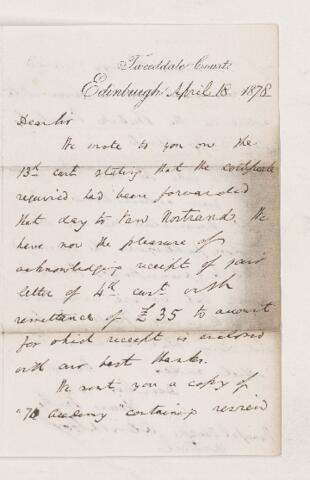 Tweeddale Court
Edinburgh April 18 1878
Dear Sir
We wrote to you on the
13th curt stating that the certificate
required had been forwarded
that day to Van Nostrand. We
have now the pleasure of
acknowledging receipt of your
letter of 4th curt with
remittance of £35 to account
for which receipt is enclosed
with our best thanks.
We sent you a copy of
"The Academy" containing review